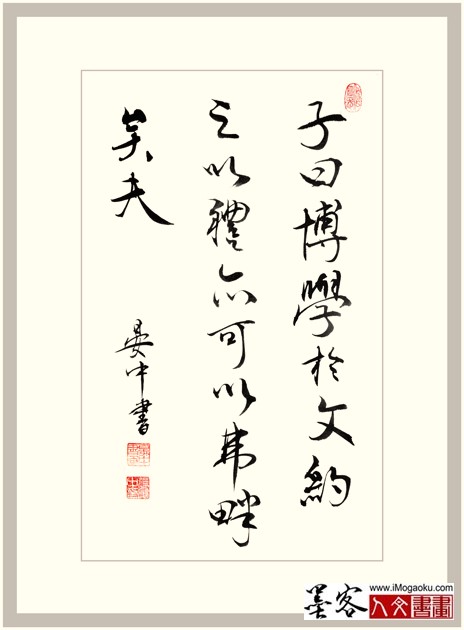 子曰博學於文約
之以禮亦可以弗畔
矣夫
晏中書
墨客
www.iMogaoku.com
人文書畫